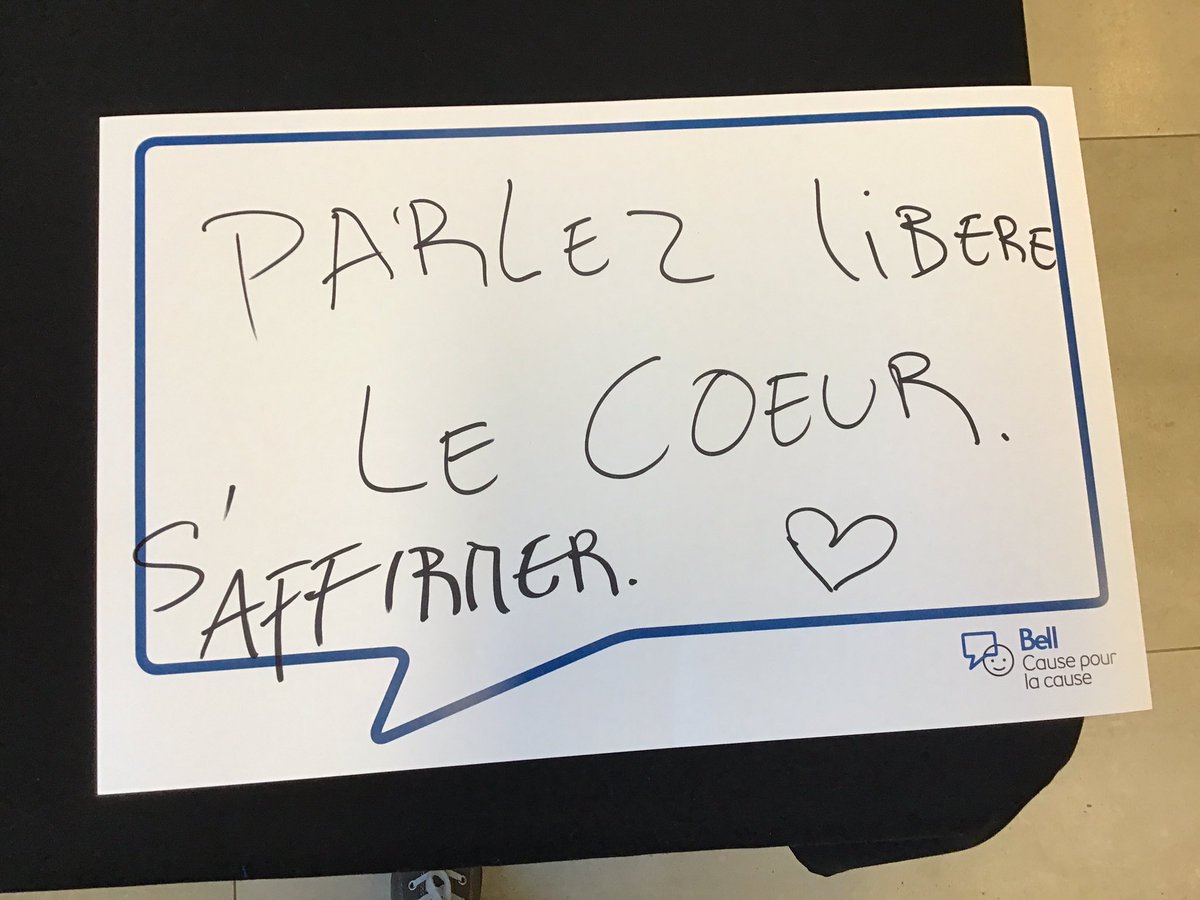 PARLEZ LIBERE
LE COEUR.
S'AFFIRMER.
Bell
Cause pour
la cause